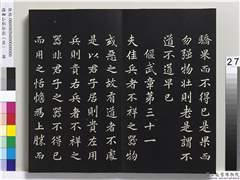 驕果而不得已是果而
勿強物壯則老是謂不
道不道早已
偃武章第三十一
夫佳兵者不祥之器物
或惡之故有道者不處
是以君子居則貴左用
兵則貴右兵者不祥之
器非君子之器不得已
而用之恬憺為上勝而
27